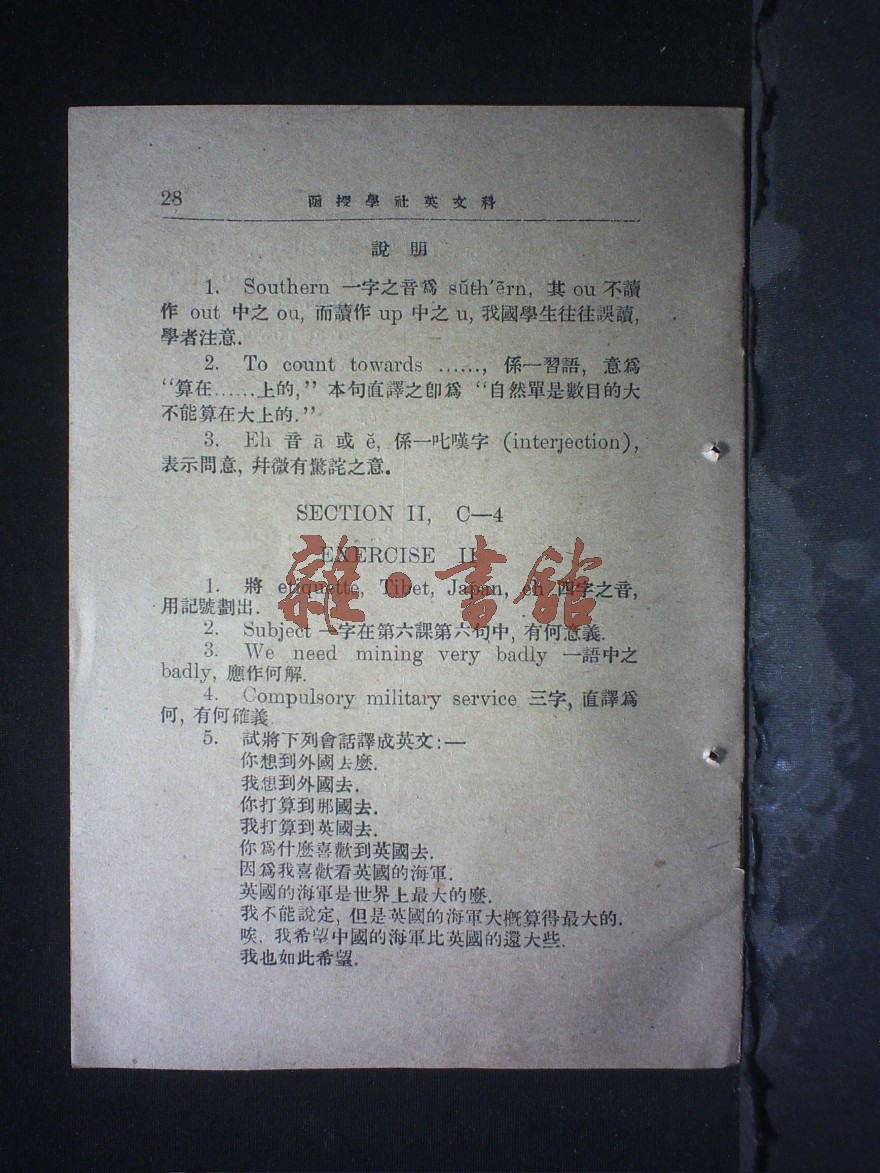 28
函授學社英文科
說明
1. Southern 一字之音爲 sŭth′ẽrn, 其 ou 不讀
作 out 中之 ou, 而讀作 up 中之 u, 我國學生往往誤讀,
學者注意.
2. To count towards ......, 係一習語, 意爲
“算在......上的,” 本句直譯之卽爲 “自然單是數目的大
不能算在大上的.”
3. Eh 音 ā 或 ĕ, 係一叱嘆字 (interjection),
表示問意, 幷微有驚詫之意.
SECTION II, C—4
EXERCISE II
1. 將 etiquette, Tibet, Japan, eh 四字之音,
用記號劃出.
2. Subject 一字在第六課第六句中, 有何意義.
3. We need mining very badly 一語中之
badly, 應作何解.
4. Compulsory military service 三字, 直譯爲
何, 有何確義
5. 試將下列會話譯成英文:—
你想到外國去麼.
我想到外國去.
你打算到那國去.
我打算到英國去.
你爲什麼喜歡到英國去.
因爲我喜歡看英國的海軍.
英國的海軍是世界上最大的麼.
我不能說定, 但是英國的海軍大槪算得最大的.
唉, 我希望中國的海軍比英國的還大些.
我也如此希望.
雜·書館